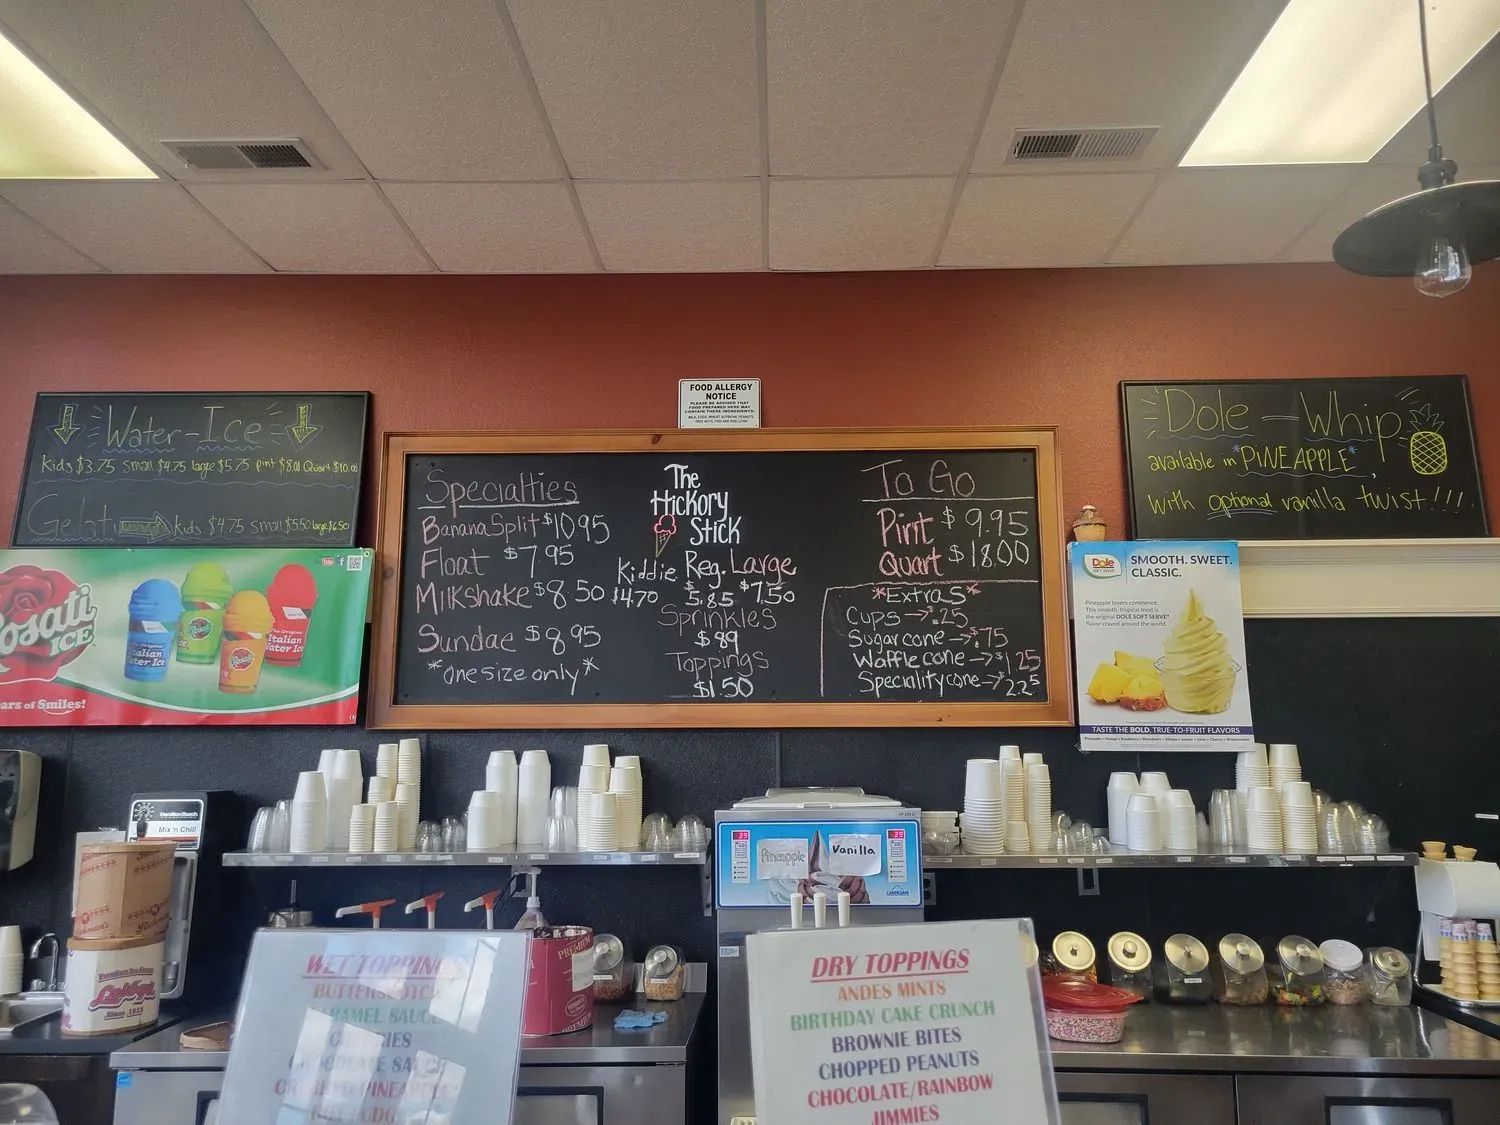 FOOD ALLERGY
NOTICE
PLEASE BE ADVISED THAT
FOOD PREPARED HERE MAY
CONTAIN THESE INGREDIENTS:
MILK, EGGS, WHEAT, SOYBEAN, PEANUTS,
TREE NUTS, FISH AND SHELLFISH
Water-Ice
Kids $3.75 small $4.75 large $5.75 pint $8.00 Quart $10.00
Gelati
kids $4.75 small $5.50 large $6.50
Specialties
Banana Split $10.95
Float $7.95
Milkshake $8.50
Sundae $8.95
*one size only*
The
Hickory
Stick
Kiddie Reg. Large
$4.70 $5.85 $7.50
Sprinkles
$.89
Toppings
$1.50
To Go
Pint $9.95
Quart $18.00
*Extras*
Cups → $.25
Sugar cone → $.75
Waffle cone → $1.25
Speciality cone → $2.25
Dole - Whip
available in *PINEAPPLE*,
with optional vanilla twist!!!
osati
ICE
The Original
Italian
Water Ice
Rosati
The Original
Italian
Water Ice
Rosati
ars of Smiles!
Dole
SOFT SERVE
SMOOTH. SWEET.
CLASSIC.
Pineapple lovers commence.
This smooth, tropical treat is
the original DOLE SOFT SERVE®
flavor craved around the world.
TASTE THE BOLD, TRUE-TO-FRUIT FLAVORS
Hamilton Beach
Mix 'n Chill
39
Pineapple
Vanilla
39
CARPIGIANI
Premium Ice Cream
Since 1862
PREMIUM
WET TOPPINGS
BUTTERSCOTCH
CARAMEL SAUCE
CHERRIES
CHOCOLATE SAUCE
CRUSHED PINEAPPLE
HOT FUDGE
DRY TOPPINGS
ANDES MINTS
BIRTHDAY CAKE CRUNCH
BROWNIE BITES
CHOPPED PEANUTS
CHOCOLATE/RAINBOW
JIMMIES